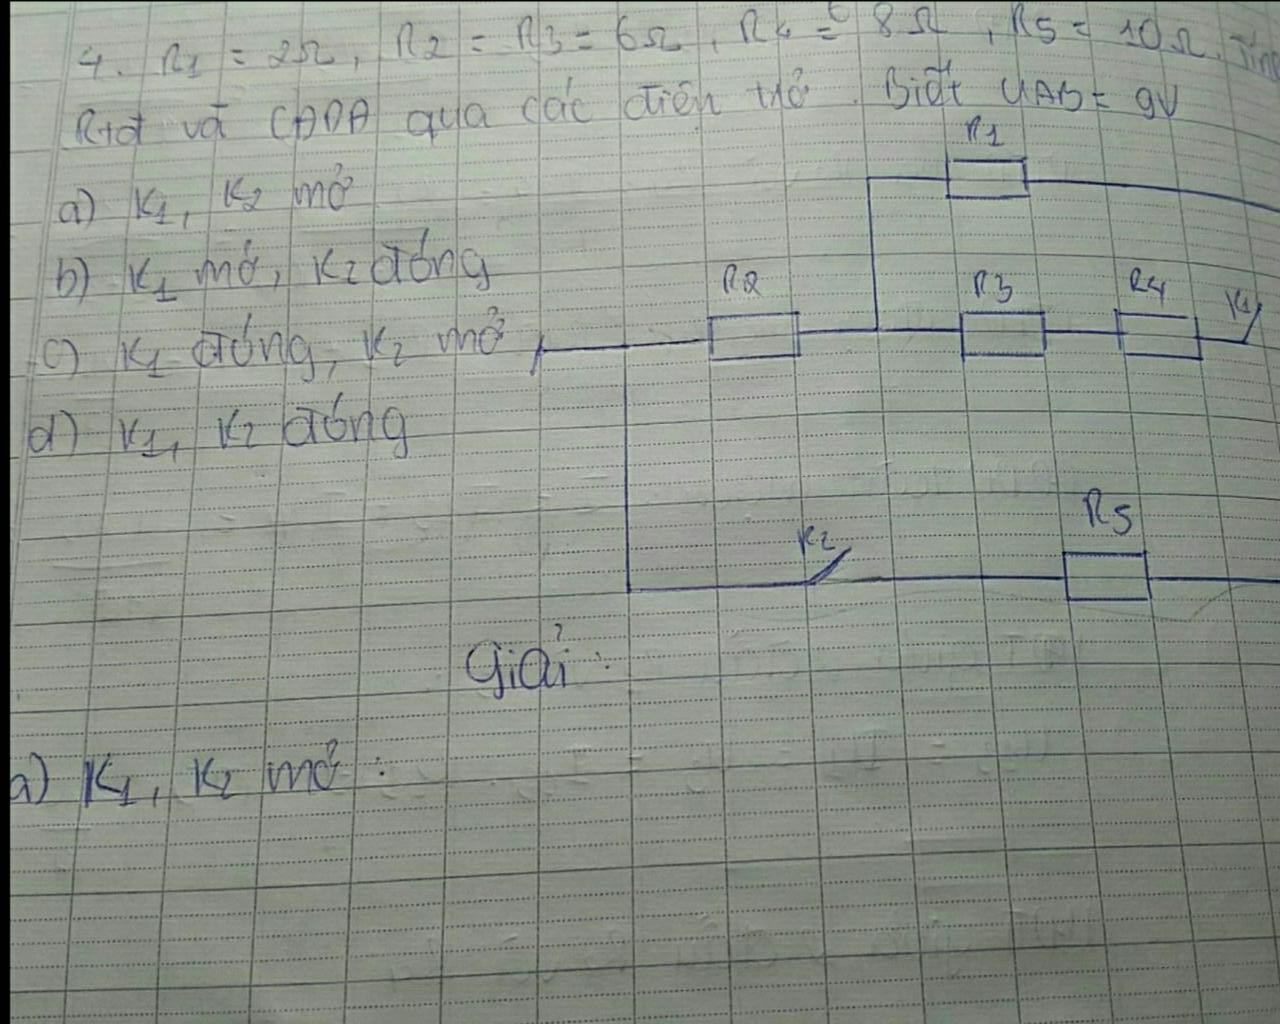 4. R1 = 2Ω, R2 = R3 = 6Ω, R4 = 8Ω, R5 = 10Ω. Tính
Rtđ và CĐDĐ qua các điện trở. Biết UAB = 9V
a) K1, K2 mở
b) K1 mở, K2 đóng
c) K1 đóng, K2 mở
d) K1, K2 đóng
R1
R2
R3
R4
K1
K2
R5
Giải:
a) K1, K2 mở: